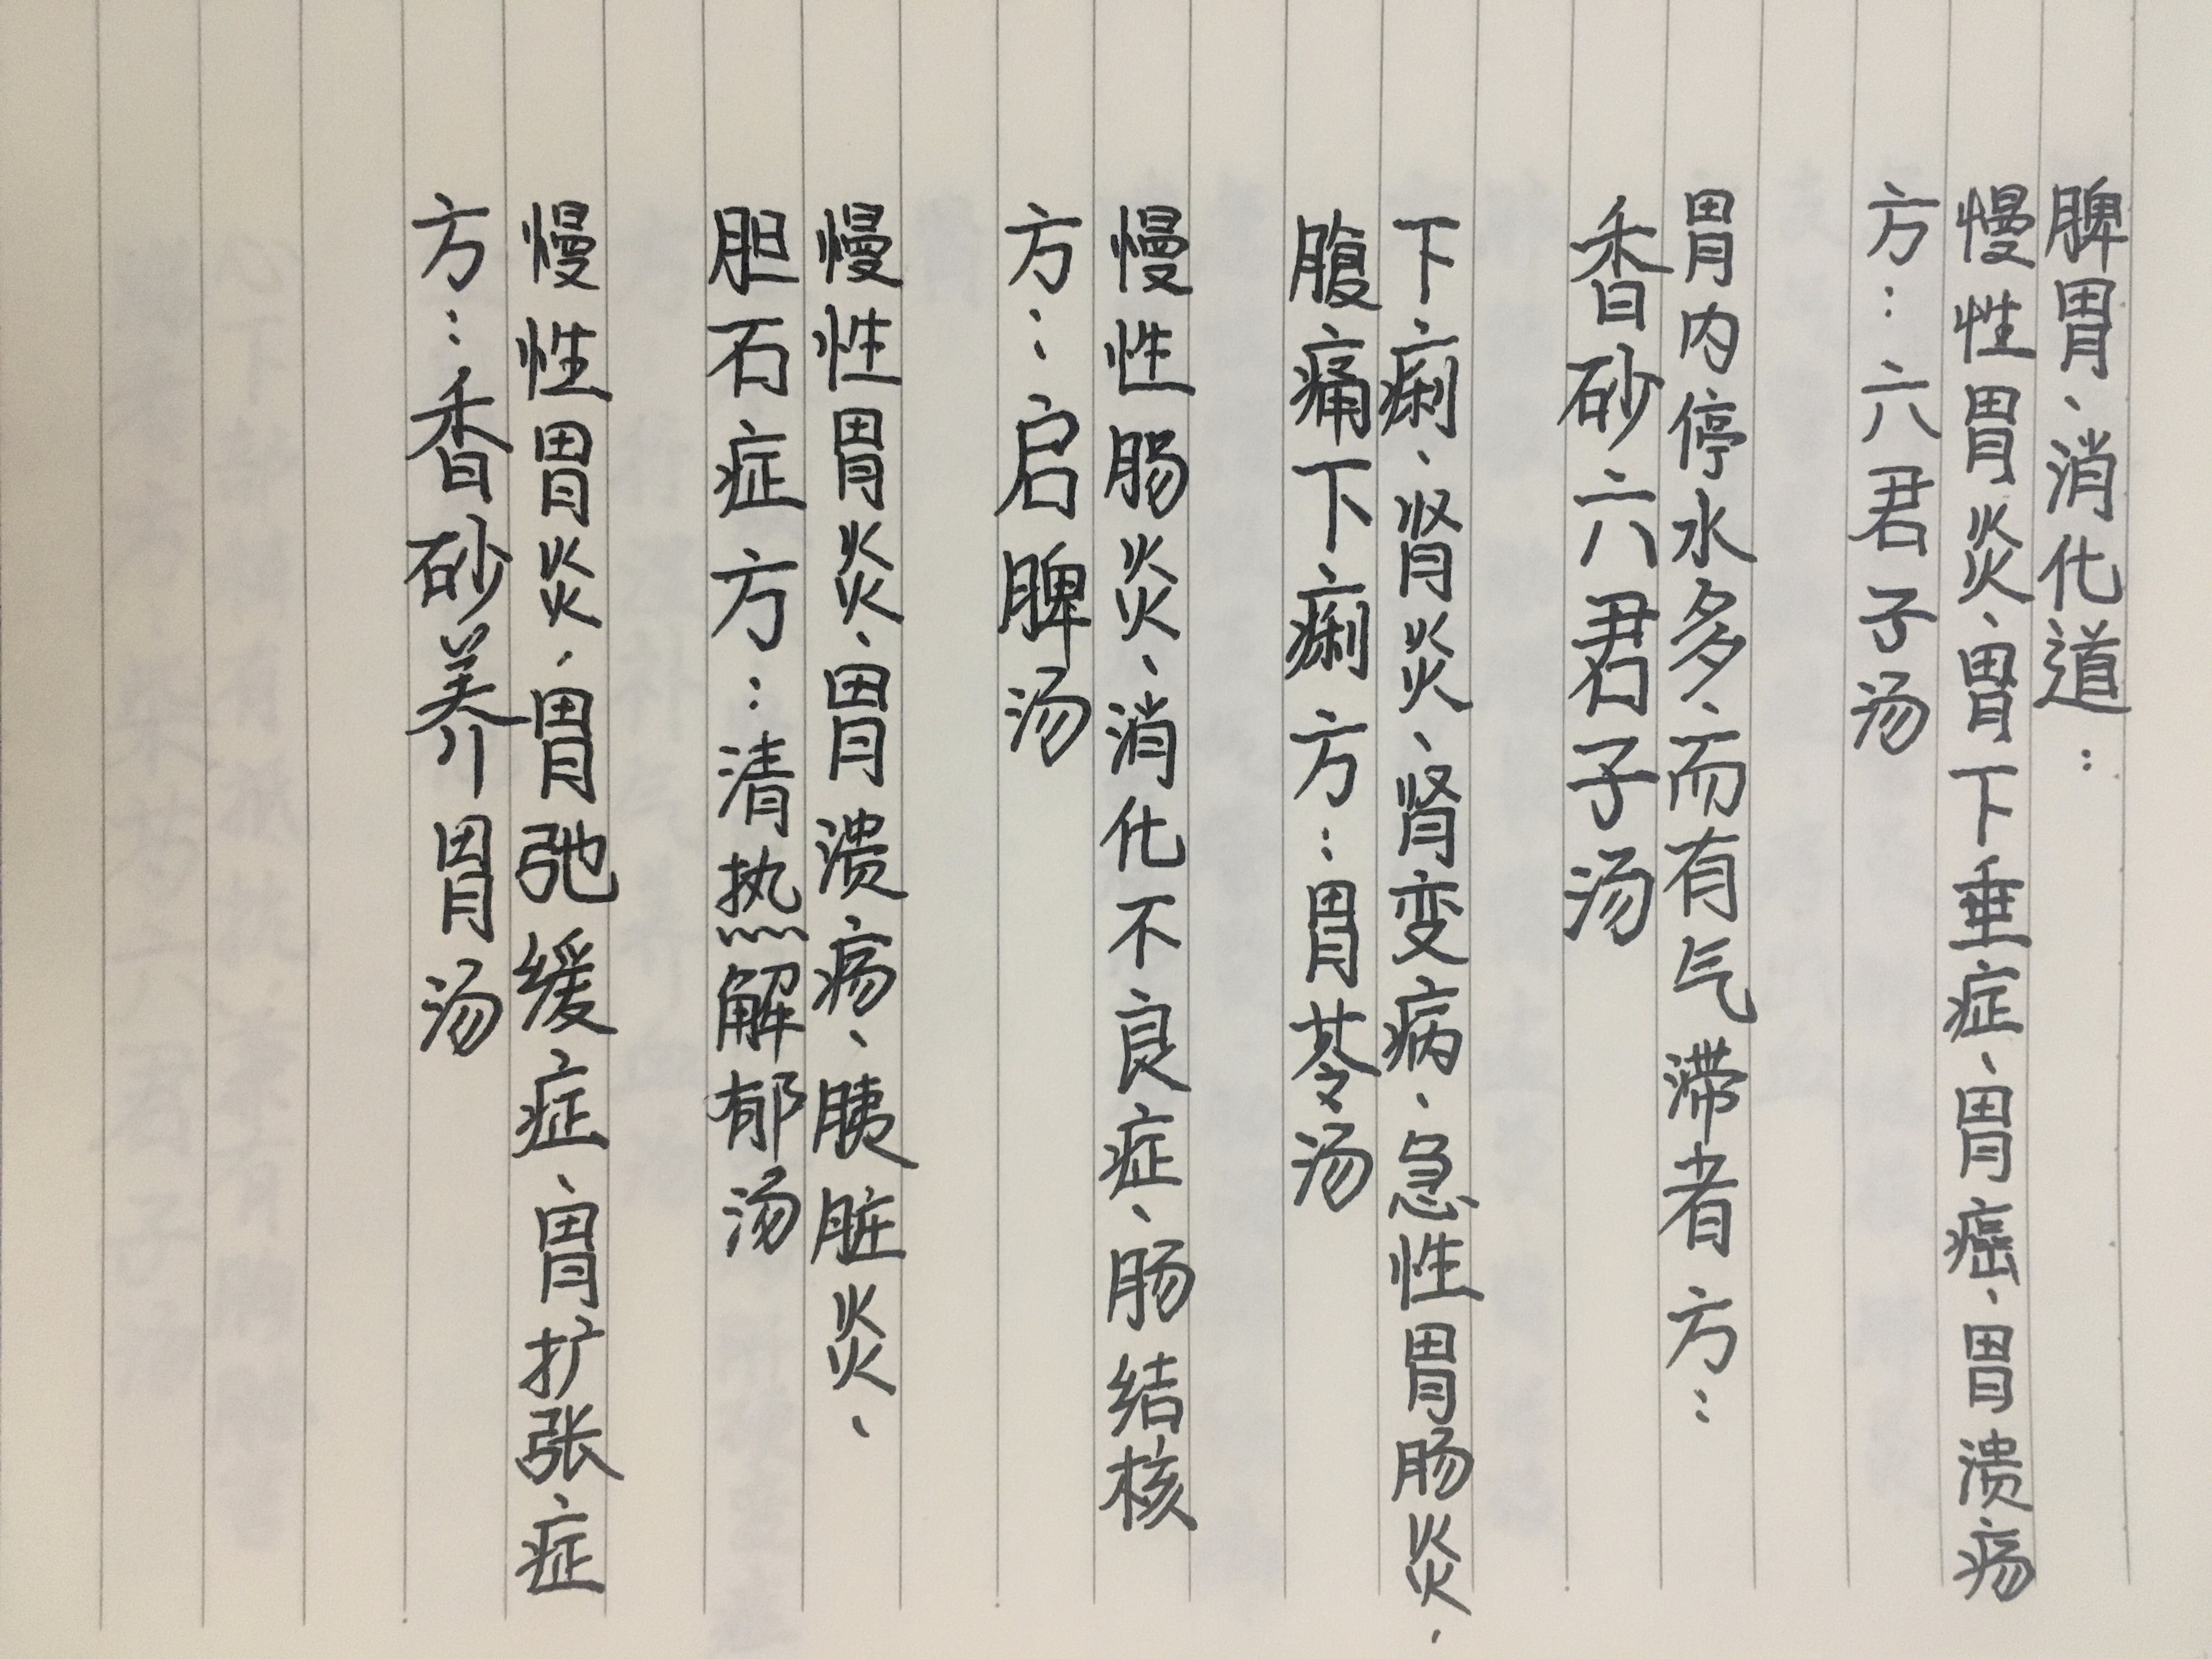 脾胃、消化道：
慢性胃炎、胃下垂症、胃癌、胃溃疡
方：六君子汤
胃内停水多、而有气滞者方：
香砂六君子汤
下痢、肾炎、肾变病、急性胃肠炎、
腹痛下痢方：胃苓汤
慢性肠炎、消化不良症、肠结核
方：启脾汤
慢性胃炎、胃溃疡、胰脏炎、
胆石症方：清热解郁汤
慢性胃炎、胃弛缓症、胃扩张症
方：香砂养胃汤